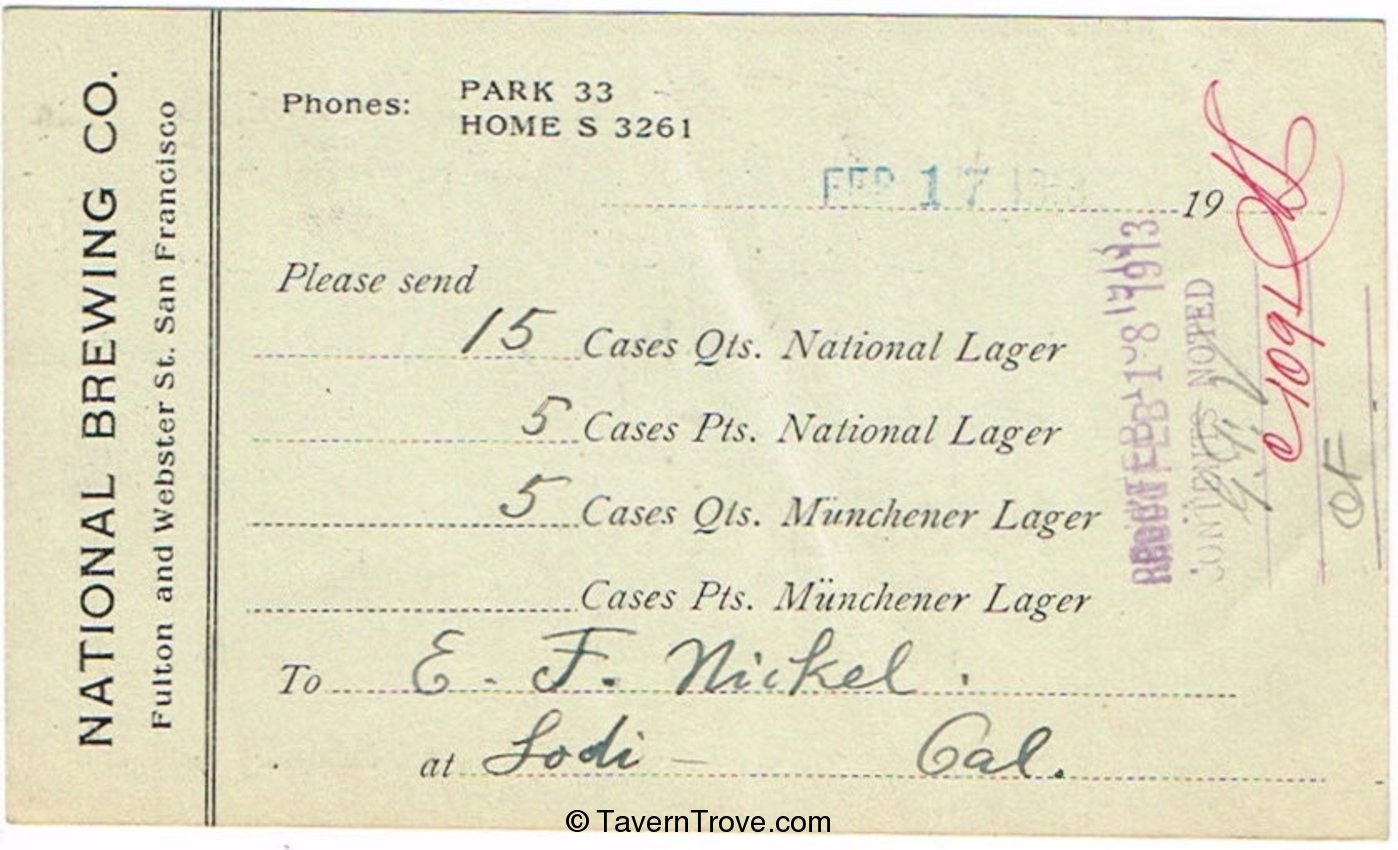 NATIONAL BREWING CO.
Fulton and Webster St. San Francisco
Phones: PARK 33
HOME S 3261
FEB 17 19
Please send
15 Cases Qts. National Lager
5 Cases Pts. National Lager
5 Cases Qts. Münchener Lager
Cases Pts. Münchener Lager
To E. F. Nickel.
at Lodi - Cal.
FEB 18 1913
NOTED
OF
© TavernTrove.com